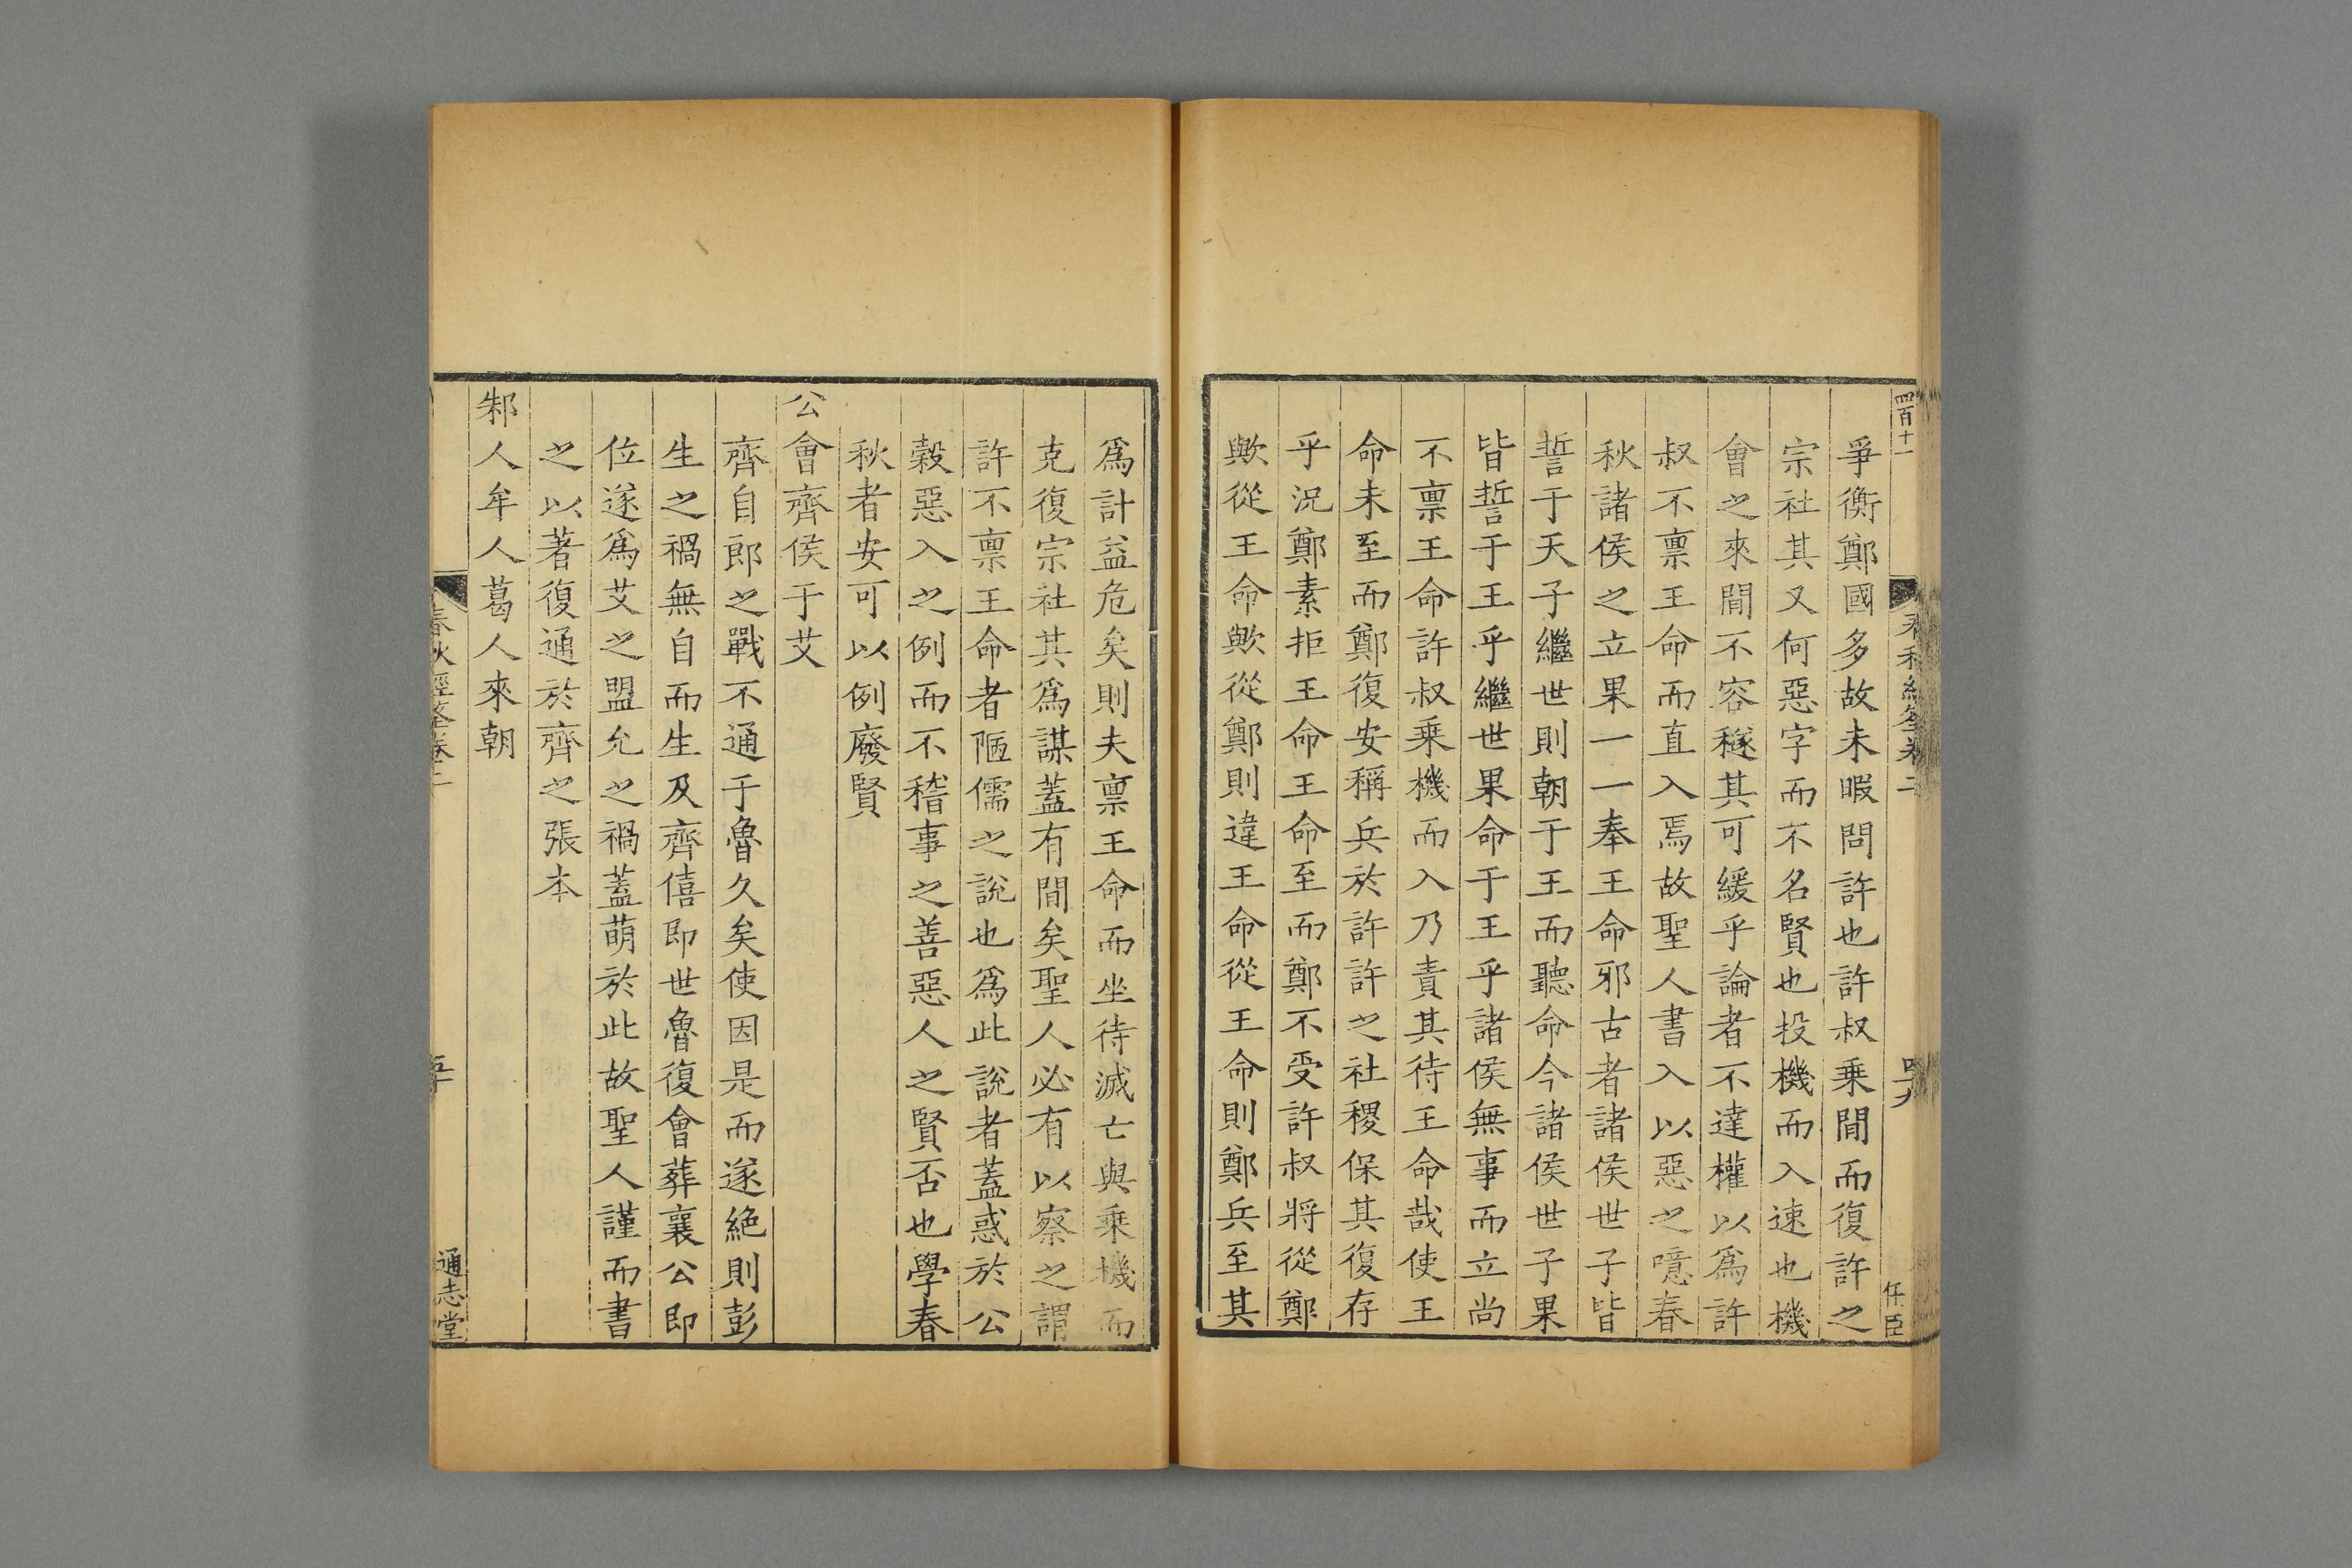 四百十一
春秋經筌卷二
四九
任臣
爭衡鄭國多故未暇問許也許叔乗間而復許之
宗社其又何惡字而不名賢也投機而入速也機
會之來間不容䆳其可緩乎論者不達權以爲許
叔不禀王命而直入焉故聖人書入以惡之噫春
秋諸侯之立果一一奉王命邪古者諸侯世子皆
誓于天子繼世則朝于王而聽命今諸侯世子果
皆誓于王乎繼世果命于王乎諸侯無事而立尚
不禀王命許叔乗機而入乃責其待王命哉使王
命未至而鄭復安稱兵於許許之社稷保其復存
乎況鄭素拒王命王命至而鄭不受許叔將從鄭
歟從王命歟從鄭則違王命從王命則鄭兵至其
爲計益危矣則夫禀王命而坐待滅亡與乗機而
克復宗社其爲謀蓋有間矣聖人必有以察之謂
許不禀王命者陋儒之說也爲此說者蓋惑於公
穀惡入之例而不稽事之善惡人之賢否也學春
秋者安可以例廢賢
公會齊侯于艾
齊自郎之戰不通于魯久矣使因是而遂絶則彭
生之禍無自而生及齊僖即世魯復會葬襄公即
位遂爲艾之盟允之禍蓋萌於此故聖人謹而書
之以著復通於齊之張本
邾人牟人葛人來朝
春秋經筌卷二
五十
通志堂